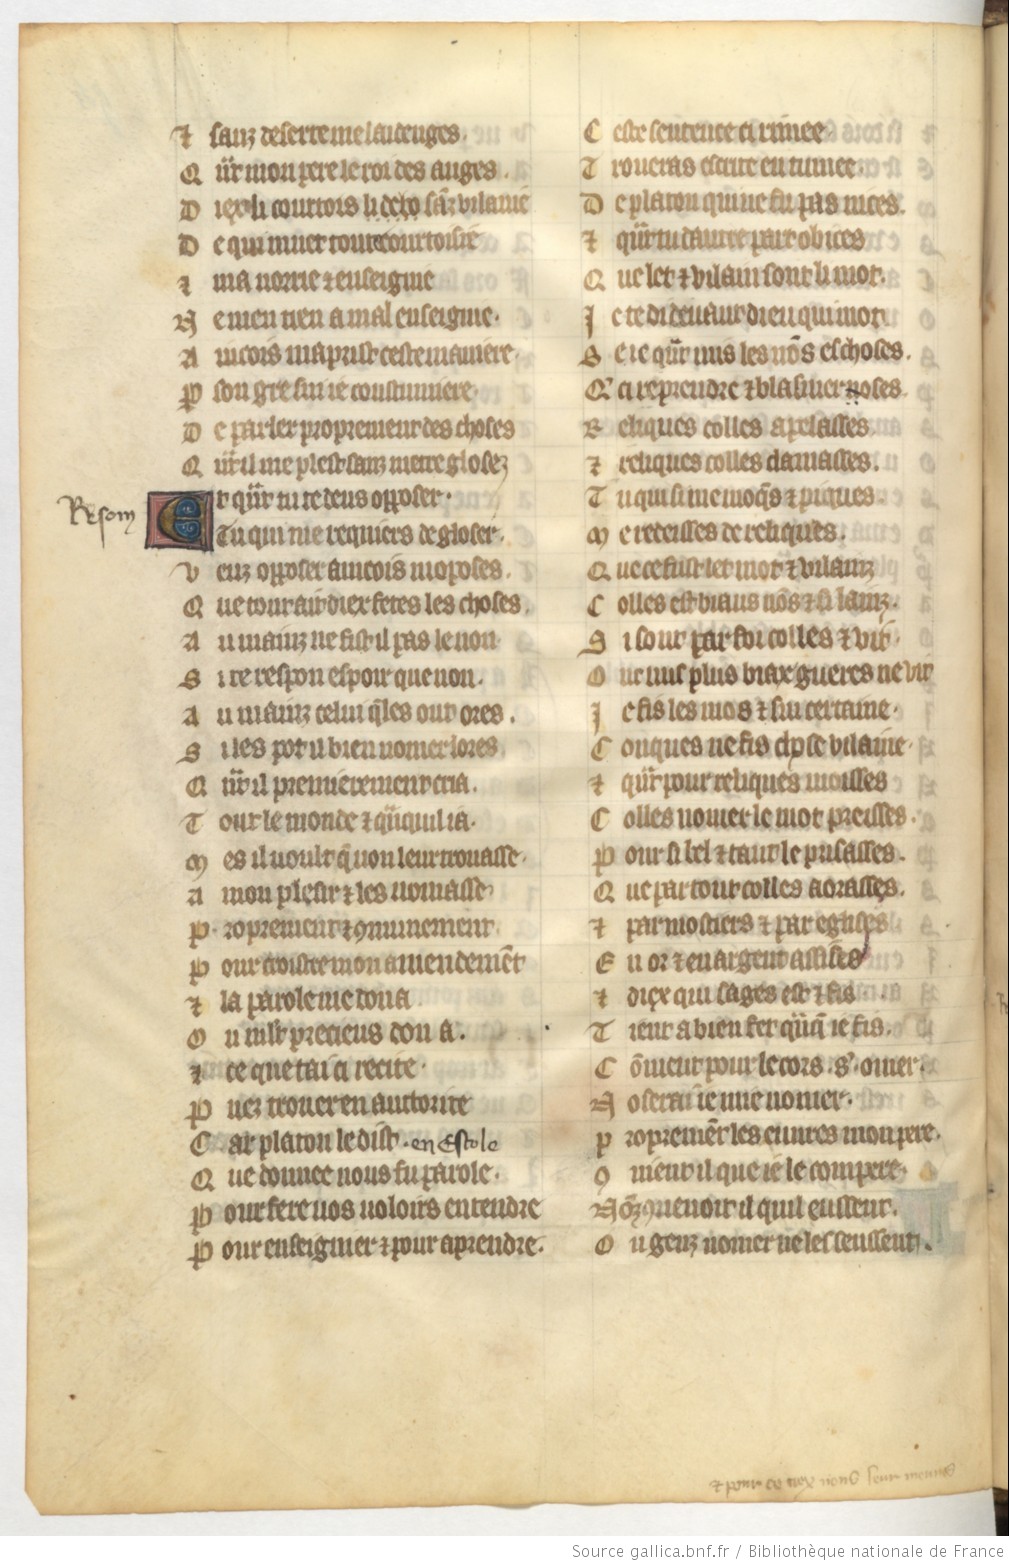 ⁊ sanz deserte me laidenges.
Q ūr mon pere le roi des anges.
D iex li courtois sās vilanie
D e qui muet toute courtoisie
⁊ ma norrie ⁊ enseignie
N e men tien a mal enseignie.
A incois maprist ceste maniere.
P son gre sui ie coustumiere.
D e parler proprement des choses
Q ūt il me plest sanz metre glosez
Resom
E t qūt tu te veus opposer.
Tu qui me requiers de gloser.
V euz opposer aincois mopposes.
Q ue tout ait diex fetes les choses.
A u mainz ne fist il pas le non
S i te respon espoir que non.
A u mainz celui q̄ les ont ores.
S i les pot il bien nomer lores
Q ūt il premierement cria.
T out le monde ⁊ qūquil i a.
M es il voult q̄ non leur trouasse.
A mon plesir ⁊ les nomasse
P roprement ⁊ ꝯmunement
P our croistre mon amendemēt
⁊ la parole me dona
O u mlt precieus don a.
⁊ ce que tai ci recite.
P uez trouer en auctorite
C ar platon le dist. en Escole
Q ue donnee nous fu parole.
P our fere nos voloirs entendre
P our enseignier ⁊ pour aprendre.
C este sentence ci rimee
T roueras escrite en timee.
D e platon qui ne fu pas nices.
⁊ qūt tu dautre part obices
Q ue let ⁊ vilain sont li mot.
J e te di deuant dieu qui mot
S e ie qūt mis les nōs es choses.
Q ci reprendre ⁊ blasmer noses.
R eliques colles apelasses
⁊ reliques colles clamasses.
T u qui si me moq̄s ⁊ piques.
M e redeisses de reliques.
Q ue ce fust let mot ⁊ vilainz
C olles est biaus nōs ⁊ si lainz.
S i sont par foi colles ⁊ vit
O nc nus plus biax gueres ne vit
J e fis les mos ⁊ sui certaine.
C onques ne fis chose vilaine.
⁊ qūt pour reliques moisses
C olles nomer le mot preisses.
P our si bel ⁊ tant le prisasses.
Q ue par tout colles aorasses.
⁊ par mostiers ⁊ par eglises
E n or ⁊ en argent assises
⁊ diex qui sages est ⁊ fis
T ient a bien fet q̄nq̄ ie fis.
C ōment pour le cors .s'. omer.
N oserai ie mie nomer.
P ropremēt les euures mon pere.
ꝯ uient il que ie le compere.
N ōs ꝯuenoit il quil eussent.
O u genz nomer ne les seussent.
⁊ pour ce nex nons leur meimes